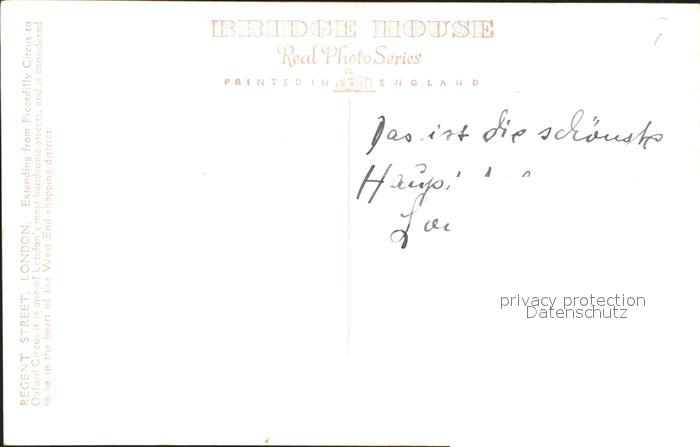 BRIDGE HOUSE
Real Photo Series
PRINTED IN ENGLAND
REGENT STREET, LONDON. Extending from Piccadilly Circus to
Oxford Circus it is one of London's most handsome streets, and is considered
to be in the heart of the West End shopping district.
Das ist die schönste
privacy protection
Datenschutz